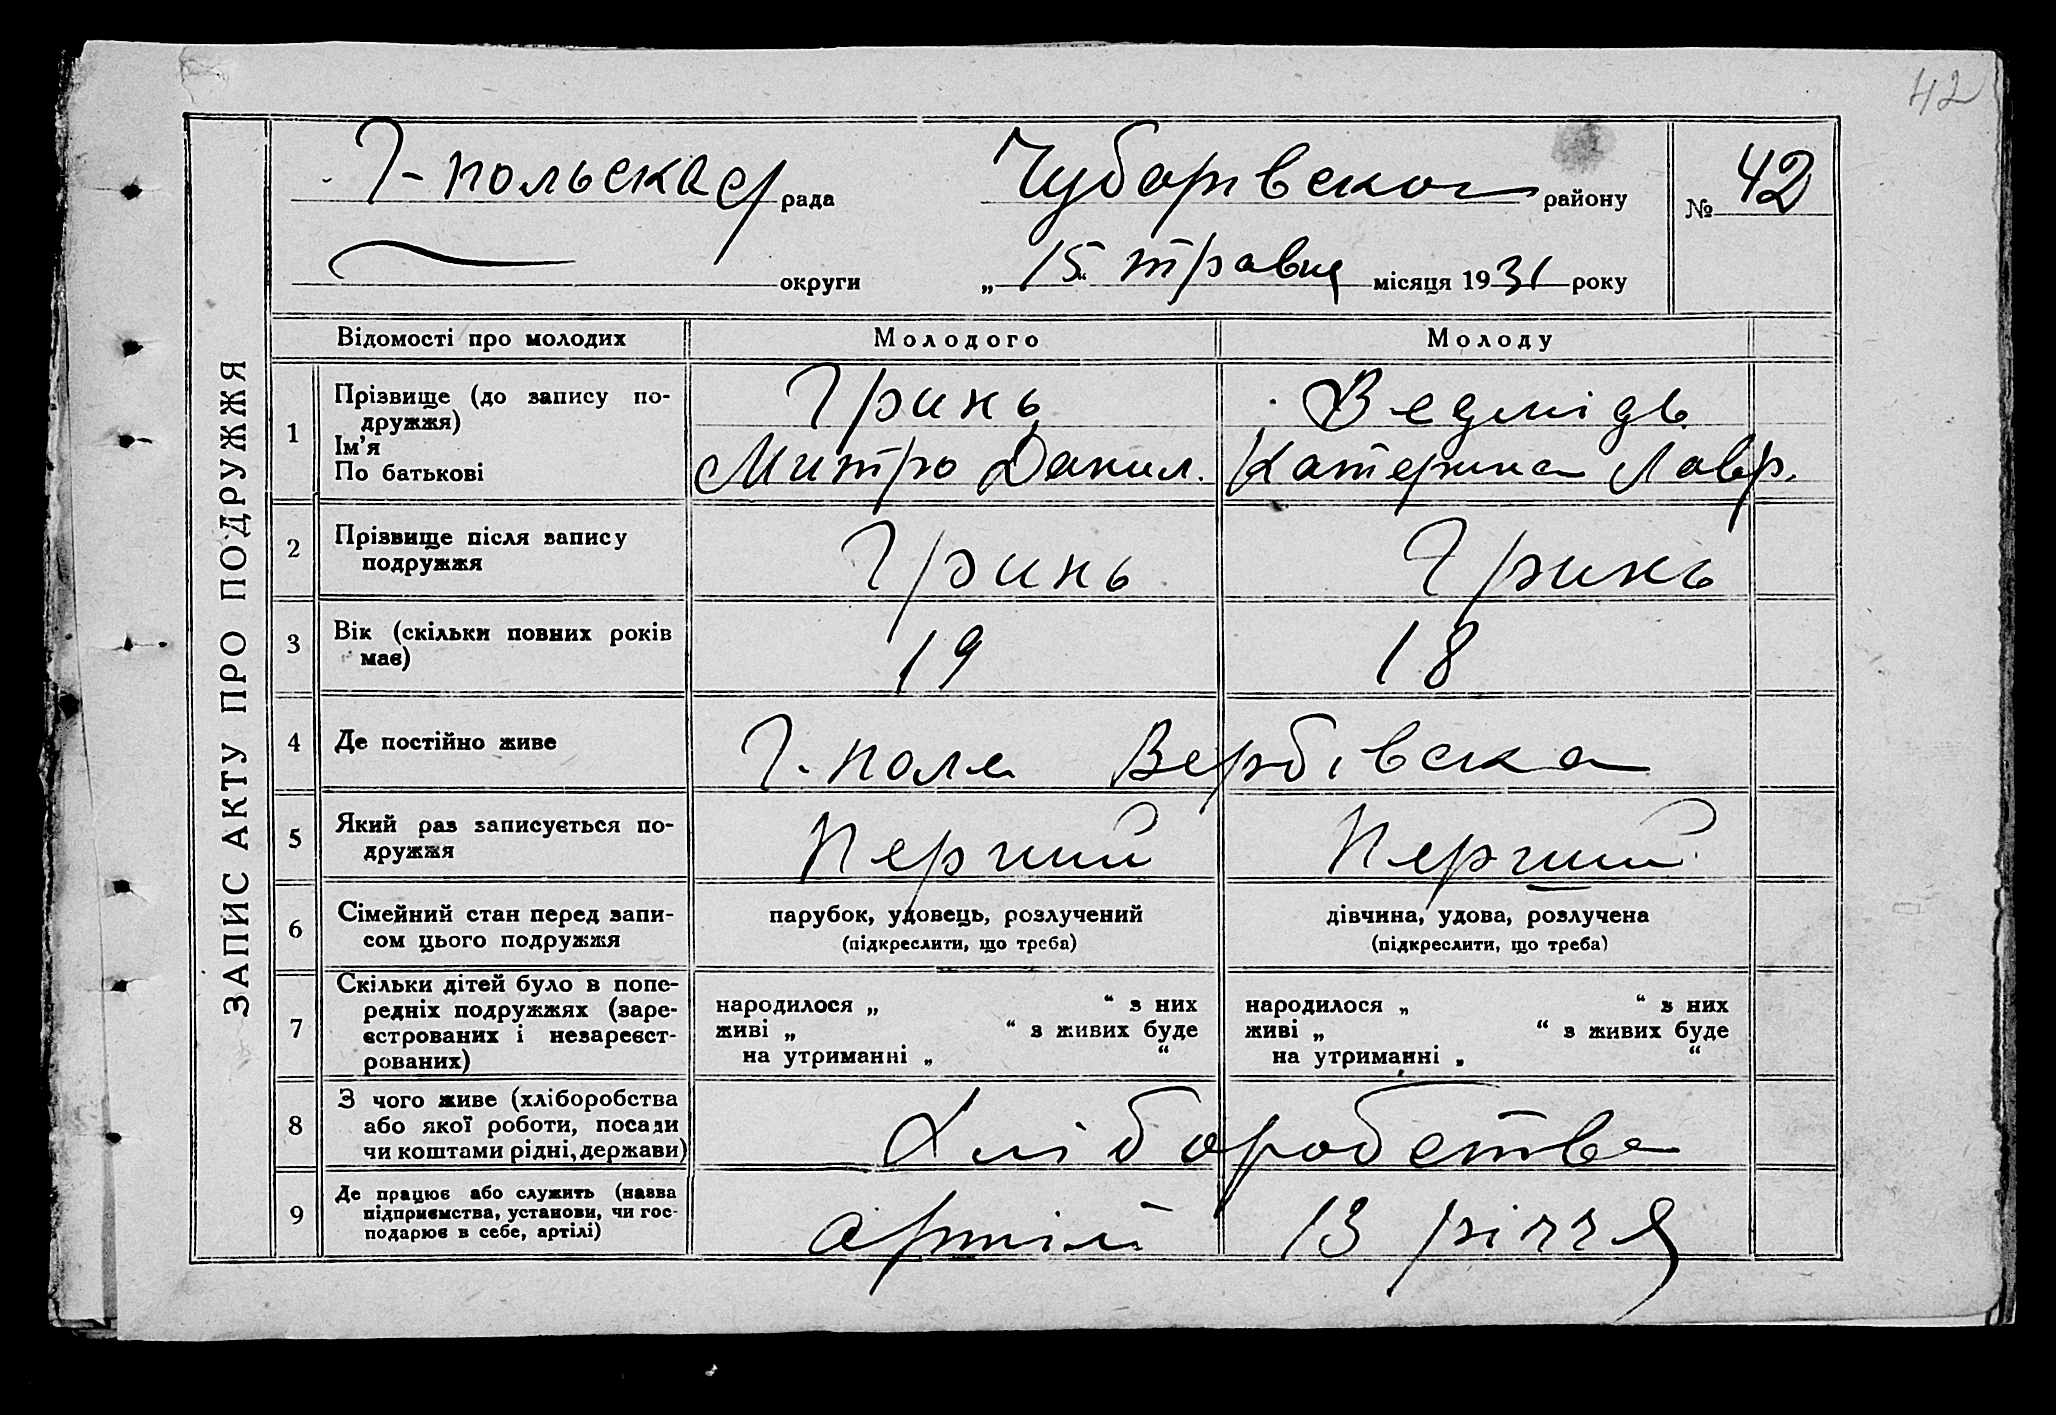 42
Г-польска с/рада Чубарівского району № 42
округи „15“ травня місяця 1931 року
ЗАПИС АКТУ ПРО ПОДРУЖЖЯ
Відомості про молодих Молодого Молоду
1 Прізвище (до запису по-
дружжя)
Ім’я
По батькові
Гринь
Митро Данил.
Ведмідь
Катерина Лавр.
2 Прізвище після запису
подружжя
Гринь Гринь
3 Вік (скільки повних років
має)
19 18
4 Де постійно живе
Г. поле Вербівска
5 Який раз записується по-
дружжя
Перший Перший
6 Сімейний стан перед запи-
сом цього подружжя
парубок, удовець, розлучений
(підкреслити, що треба)
дівчина, удова, розлучена
(підкреслити, що треба)
7 Скільки дітей було в попе-
редніх подружжях (заре-
єстрованих і незареєст-
рованих)
народилося „ “ з них
живі „ “ з живих буде
на утриманні „ “
народилося „ “ з них
живі „ “ з живих буде
на утриманні „ “
8 З чого живе (хліборобства
або якої роботи, посади
чи коштами рідні, держави)
Хліборобства
9 Де працює або служить (назва
підприємства, установи, чи гос-
подарює в себе, артілі)
артілі 13 річчя